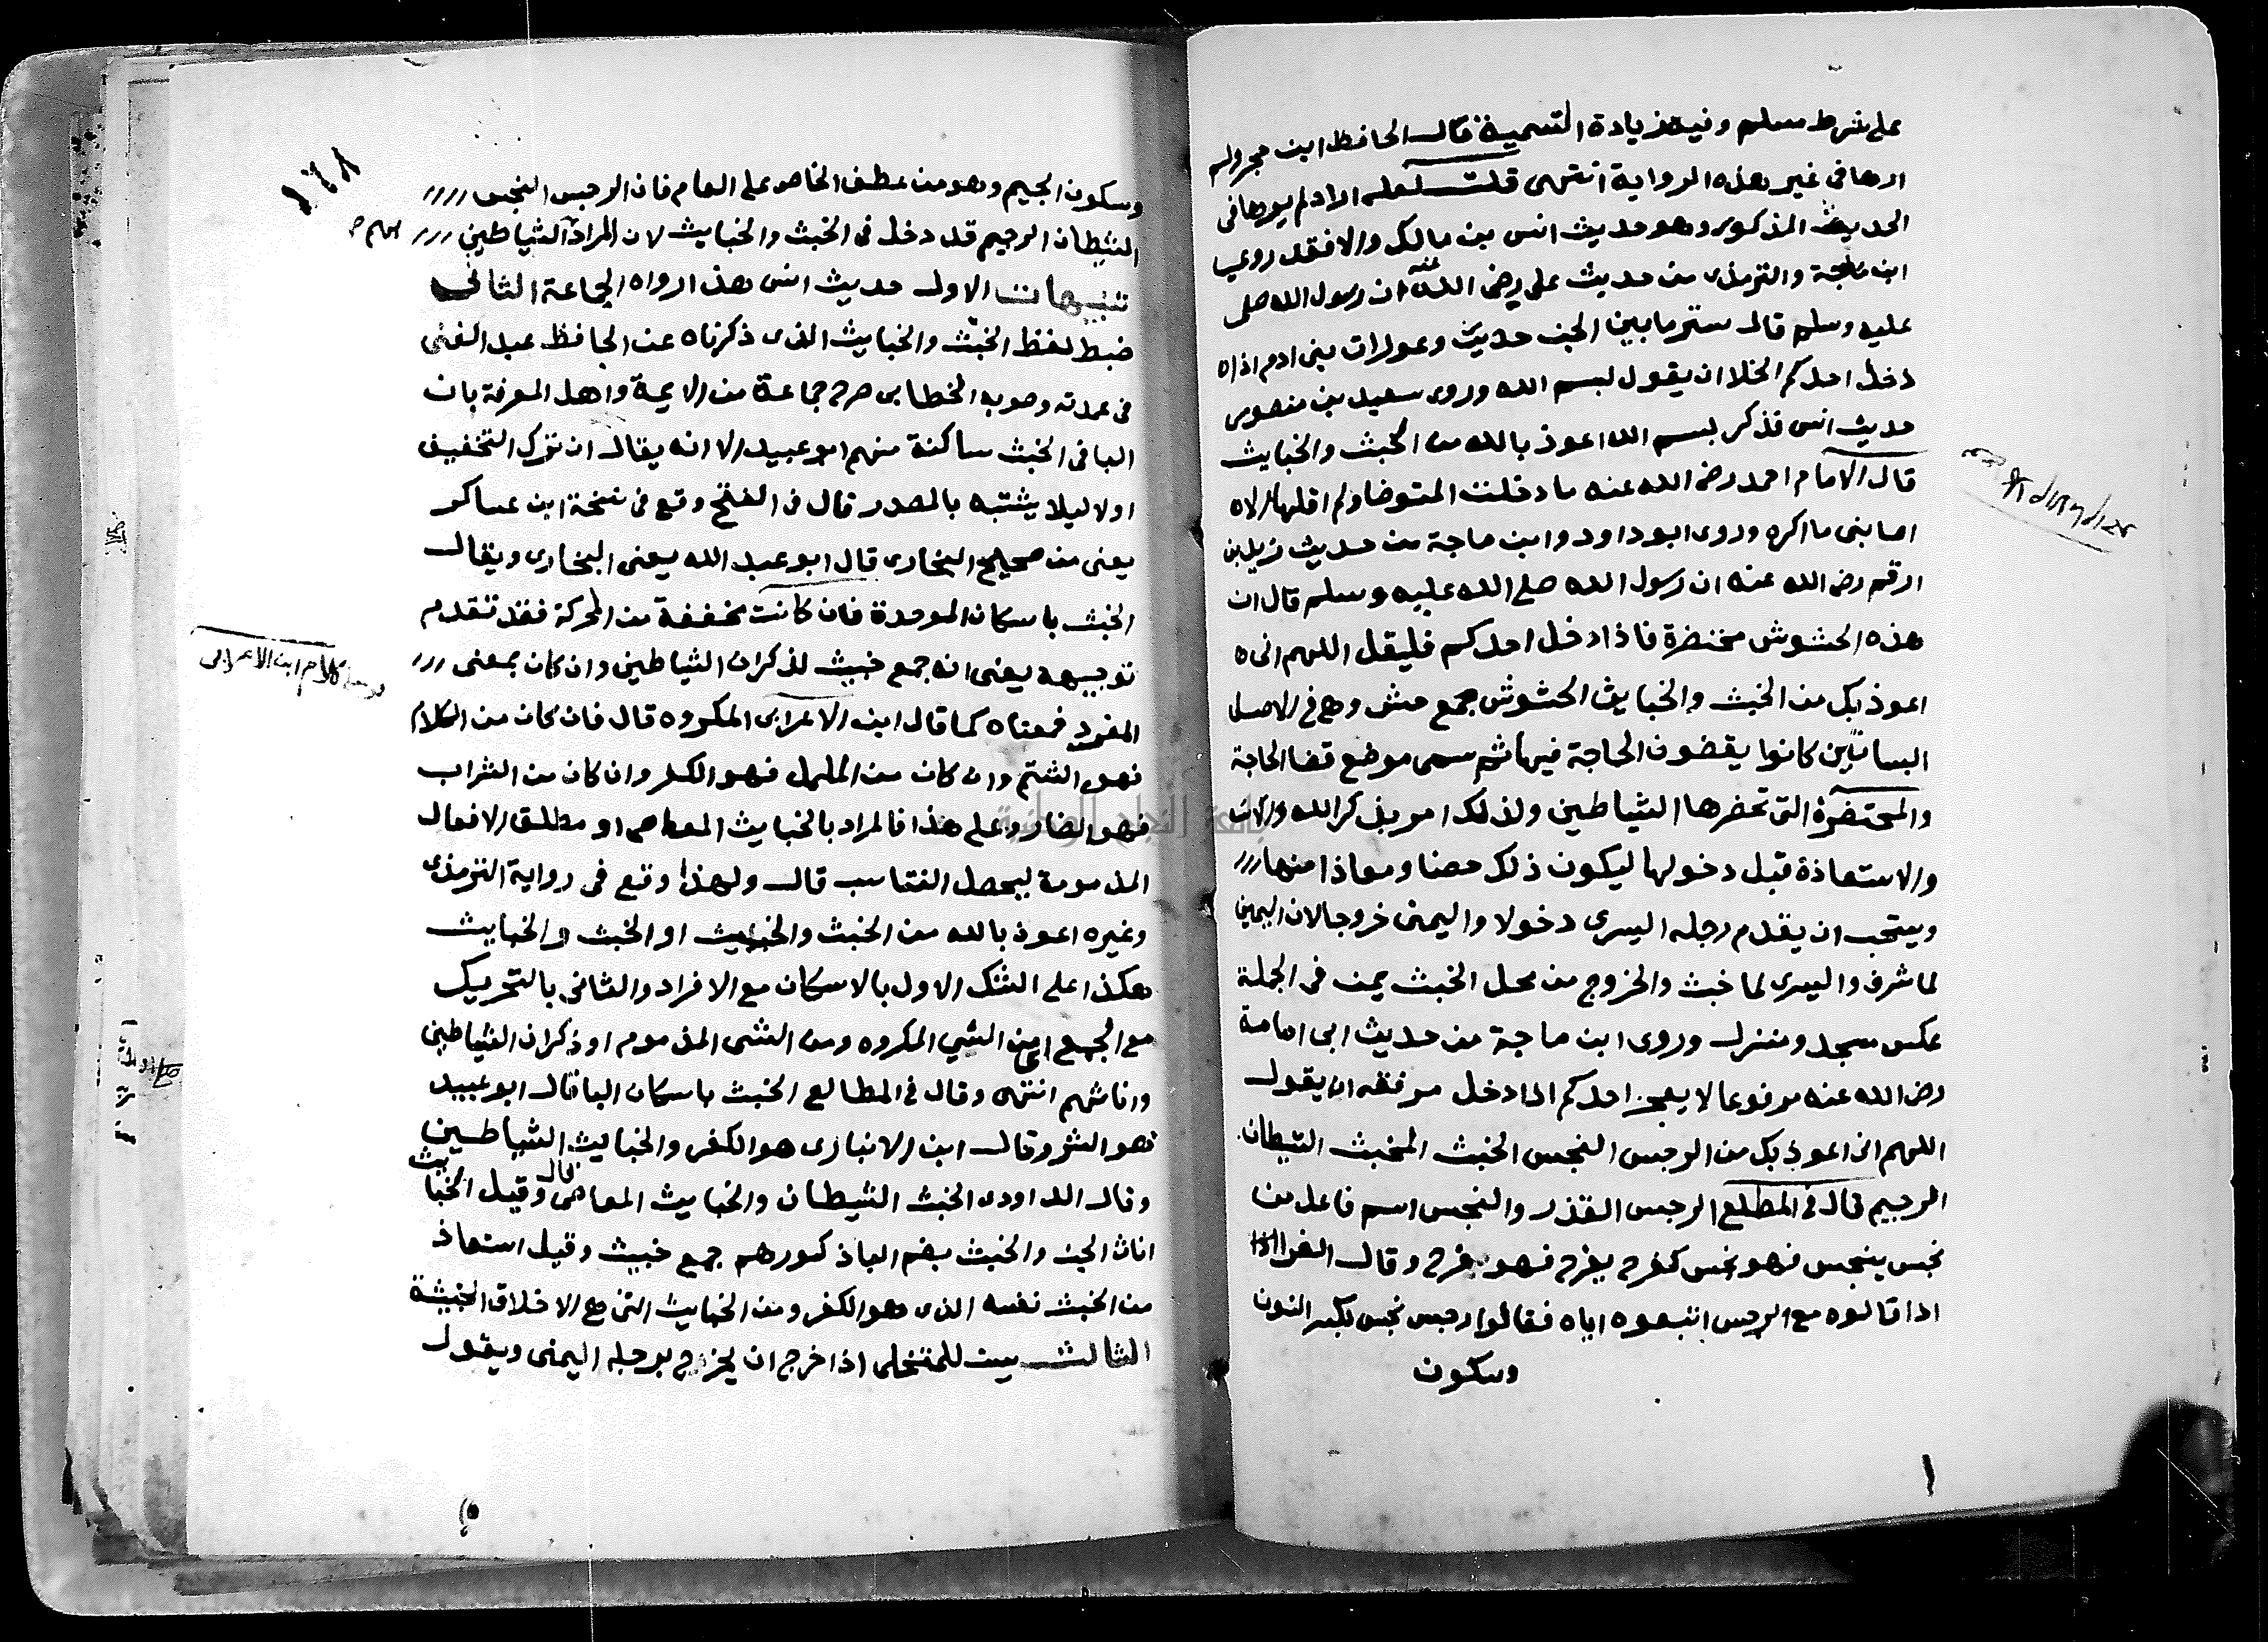 على شرط مسلم وفيه زيادة التسمية قال الحافظ ابن حجر ولم
ارها في غير هذه الرواية انتهى قلت لعله اراد لم يرها في
الحديث المذكور وهو حديث انس بن مالك والا فقد روى
ابن ماجة والترمذى من حديث على رضى الله عنه ان رسول الله صلى
عليه وسلم قال ستر ما بين الجن حديث وعورات بنى ادم اذا
دخل احدكم الخلا ان يقول بسم الله وروى سعيد بن منصور
حديث انس فذكر بسم الله اعوذ بالله من الخبث والخبايث
قال الامام احمد رضى الله عنه ما دخلت المتوضا ولم اقلها الا
اصابنى ما اكره وروى ابو داود وابن ماجة من حديث زيد بن
ارقم رضى الله عنه ان رسول الله صلى الله عليه وسلم قال ان
هذه الحشوش محتضرة فاذا دخل احدكم فليقل اللهم انى
اعوذ بك من الخبث والخبايث الحشوش جمع حش وهي في الاصل
البساتين كانوا يقضون الحاجة فيها ثم سمى موضع قضا الحاجة
والمحتضرة التى تحضرها الشياطين ولذلك امر بذكر الله
والاستعاذة قبل دخولها ليكون ذلك حصنا ومعاذا منها
ويستحب ان يقدم رجله اليسرى دخولا واليمنى خروجا لان اليمين
لما شرف واليسرى لما خبث والخروج من محل الخبث يمن في الجملة
عكس مسجد ومنزل وروى ابن ماجة من حديث ابى امامة
رضى الله عنه مرفوعا لا يعجز احدكم اذا دخل مرفقه ان يقول
اللهم انى اعوذ بك من الرجس النجس الخبث المخبث الشيطان
الرجيم قال في المطلع الرجس القذر والنجس اسم فاعل من
نجس ينجس فهو نجس كفرح يفرح فهو فرح وقال الفرا
اذا قالوه مع الرجس اتبعوه اياه فقالوا رجس نجس بكسر النون
وسكون
١٦٨
وسكون الجيم وهو من عطف الخاص على العام فان الرجس النجس
الشيطان الرجيم قد دخل في الخبث والخبايث لان المراد الشياطين
تنبيهات الاول حديث انس هذا رواه الجماعة الثانى
ضبط لفظ الخبث والخبايث الذى ذكرناه عن الحافظ عبد الغنى
في عمدته وصوبه الخطابى صرح جماعة من الايمة واهل المعرفة بان
البا في الخبث ساكنة منهم ابو عبيد الا انه يقال ان ترك التخفيف
اولا ليلا يشتبه بالمصدر قال في الفتح وقع في نسخة ابن عساكر
يعنى من صحيح البخارى قال ابو عبد الله يعنى البخارى ويقال
الخبث باسكان الموحدة فان كانت مخففة من المحركة فقد تقدم
توجيهه يعنى انه جمع خبيث لذكران الشياطين وان كان بمعنى
المفرد فمعناه كما قال ابن الاعرابى المكروه قال فان كان من الكلام
فهو الشتم وان كان من الملل فهو الكفر وان كان من الشراب
فهو الضار وعلى هذا فالمراد بالخبايث المعاصى او مطلق الافعال
المذمومة ليحصل التناسب قال ولهذا وقع في رواية الترمذى
وغيره اعوذ بالله من الخبث والخبيث او الخبث والخبايث
هكذا على الشك الاول بالاسكان مع الافراد والثانى بالتحريك
مع الجمع اى من الشي المكروه ومن الشى المذموم او ذكران الشياطين
واناثهم انتهى وقال في المطالع الخبث باسكان البا قال ابو عبيد
فهو الشر وقال ابن الانبارى هو الكفر والخبايث الشياطين
وقال الداودى الخبث الشيطان والخبايث المعاصى قال وقيل الخبايث
اناث الجن والخبث بضم البا ذكورهم جمع خبيث وقيل استعاذ
من الخبث نفسه الذى هو الكفر ومن الخبايث التى هي الاخلاق الخبيثة
الثالث يسن للمتخلى اذا خرج ان يخرج برجله اليمنى ويقول
كلام ابن الاعرابى